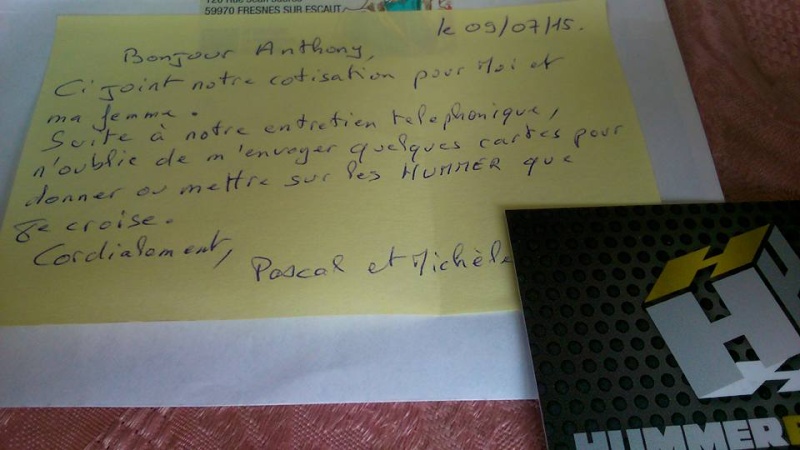 59970 FRESNES SUR ESCAUT
le 09/07/15.
Bonjour Anthony,
Ci joint notre cotisation pour Moi et
ma femme.
Suite à notre entretien telephonique,
n'oublie de m'envoyer quelques cartes pour
donner ou mettre sur les HUMMER que
je croise.
Cordialement,
Pascal et Michèle
HUMMER